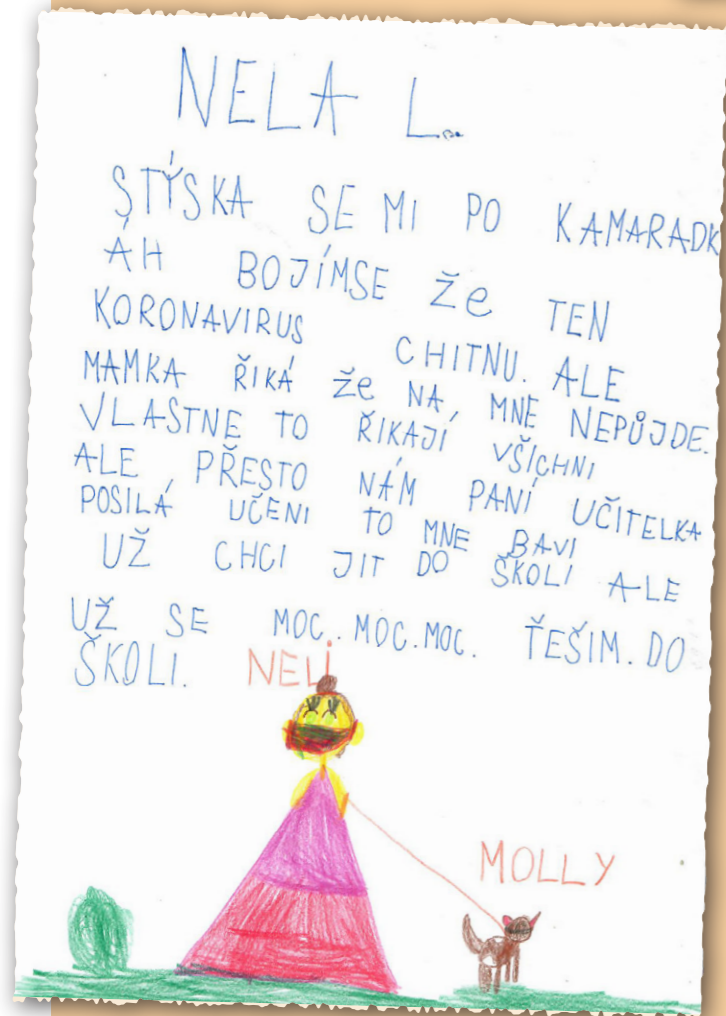 NELA L..
STÝSKA SE MI PO KAMARADK
ÁH BOJÍMSE Že TEN
KORONAVIRUS CHITNU. ALE
MAMKA ŘIKÁ Že NA MNE NEPŮJDE.
VLASTNE TO ŘIKAJÍ VŠICHNI
ALE PŘESTO NÁM PANÍ UČITELKA
POSILÁ UČENI TO MNE BAVI
UŽ CHCI JIT DO ŠKOLI ALE
UŽ SE MOC. MOC.MOC. ŤEŠIM. DO
ŠKOLI. NELI
MOLLY